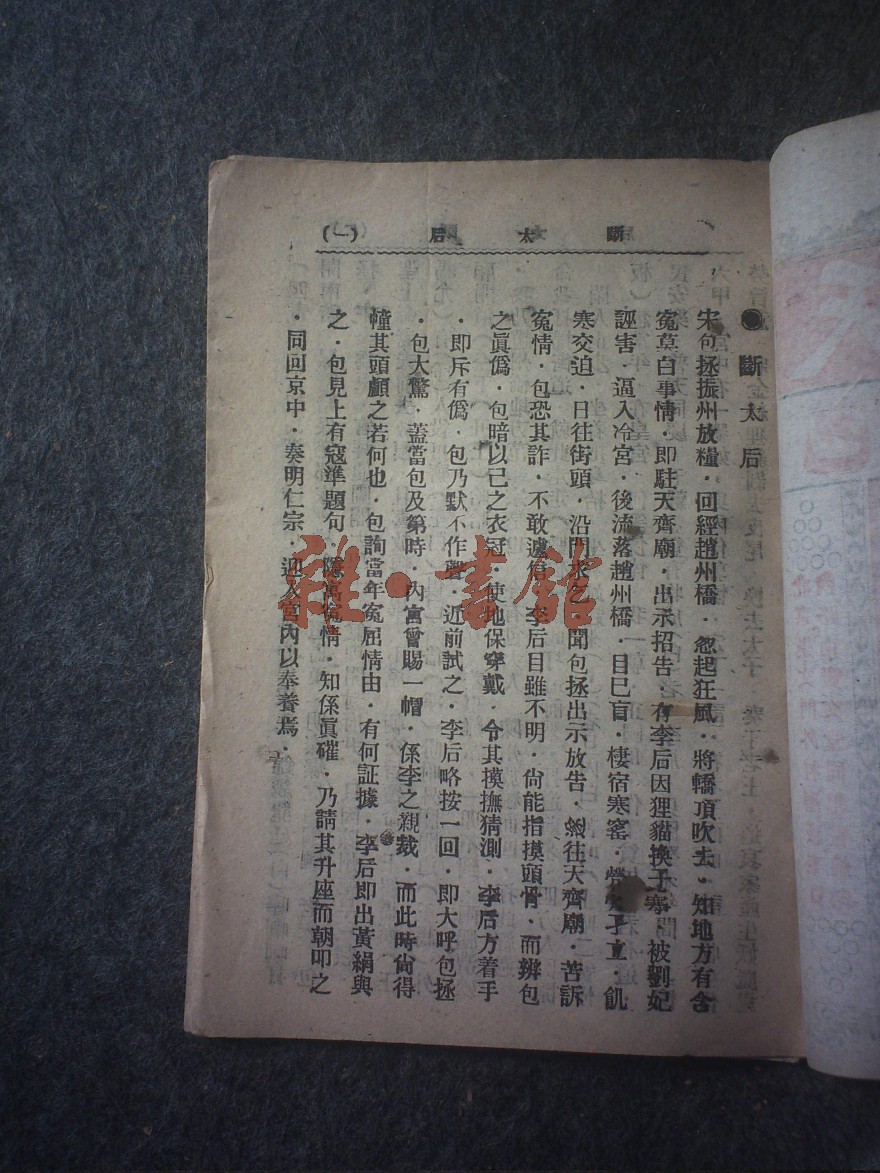 斷太后 (一)
●斷太后
宋包拯振州放糧．回經趙州橋．忽起狂風．將轎頂吹去．知地方有含
冤莫白事情．即駐天齊廟．出示招告．有李后因狸貓換子事．被劉妃
誣害．逼入冷宮．後流落趙州橋．目已盲．棲宿寒窰．孑立．飢
寒交迫．日往街頭．沿門求乞．聞包拯出示放告．往天齊廟．苦訴
冤情．包恐其詐．不敢遽信．李后目雖不明．尙能指摸頭骨．而辨包
之眞僞．包暗以己之衣冠．使地保穿戴．令其摸撫猜測．李后方着手
．即斥有僞．包乃默不作聲．近前試之．李后略按一回．即大呼包拯
．包大驚．蓋當包及第時．內宮曾賜一帽．係李之親裁．而此時尙得
憧其頭顱之若何也．包詢當年冤屈情由．有何証據．李后即出黃絹與
之．包見上有寇準題句．隱寓冤情．知係眞確．乃請其升座而朝叩之
．同回京中．奏明仁宗．迎入宮內以奉養焉．
雜·書館